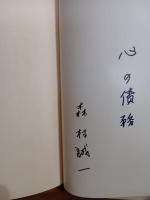 心の債務
森村誠一